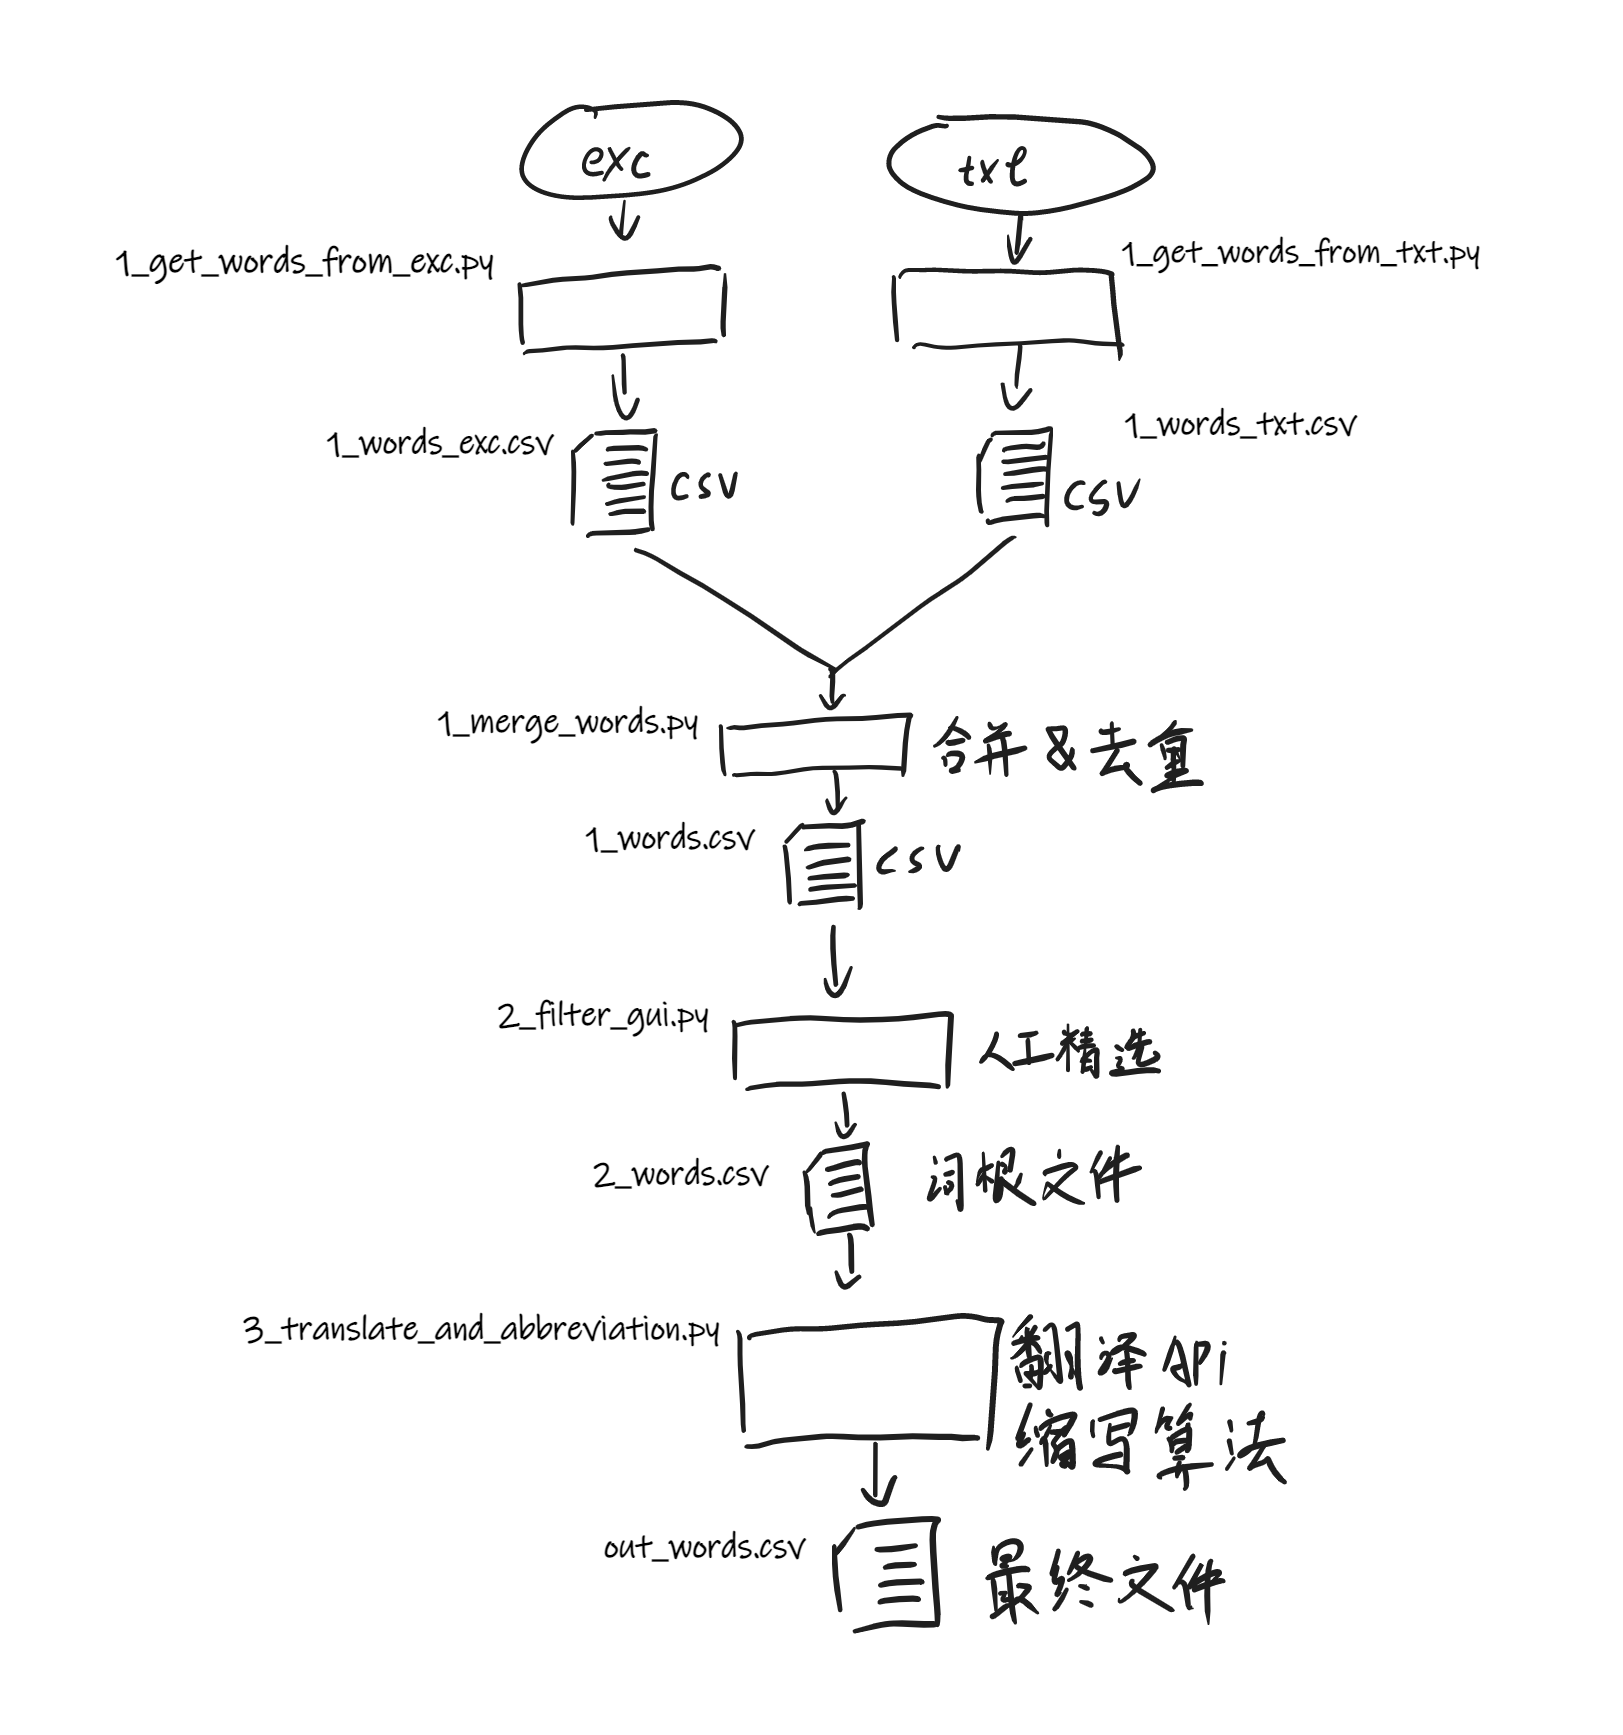 exc
txt
1_get_words_from_exc.py
1_get_words_from_txt.py
1_words_exc.csv
csv
1_words_txt.csv
csv
1_merge_words.py
合并&去重
1_words.csv
csv
2_filter_gui.py
人工精选
2_words.csv
词根文件
3_translate_and_abbreviation.py
翻译api
缩写算法
out_words.csv
最终文件